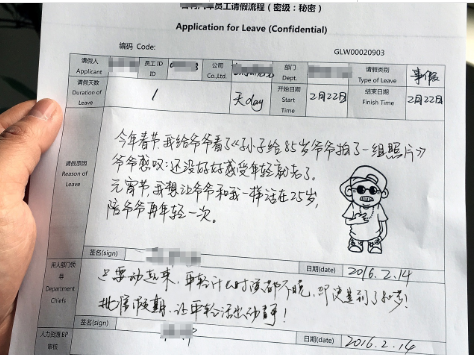 汽车员工请假流程（密级：秘密）
Application for Leave (Confidential)
编码 Code: GLW00020903
请假人 Applicant 员工 ID ID 公司 Co.,Ltd. 部门 Dept. 请假类别 Type of Leave 事假
请假天数 Duration of Leave 1 天day 开始日期 Start Time 2月22日 结束日期 Finish Time 2月22日
请假原因 Reason of Leave
今年春节我给爷爷看了《孙子给85岁爷爷拍了一组照片》
爷爷感叹：还没好好感受年轻就老了。
元宵节，我想让爷爷和我一样活在25岁，
陪爷爷再年轻一次。
签名(sign) 日期(date) 2016.2.14
Department Chiefs
只要动起来，年轻什么时候都不晚，即使到了80岁！
批准假期，让年轻活出动静！
签名(sign) 日期(date) 2016.2.14
人力资源部
审核